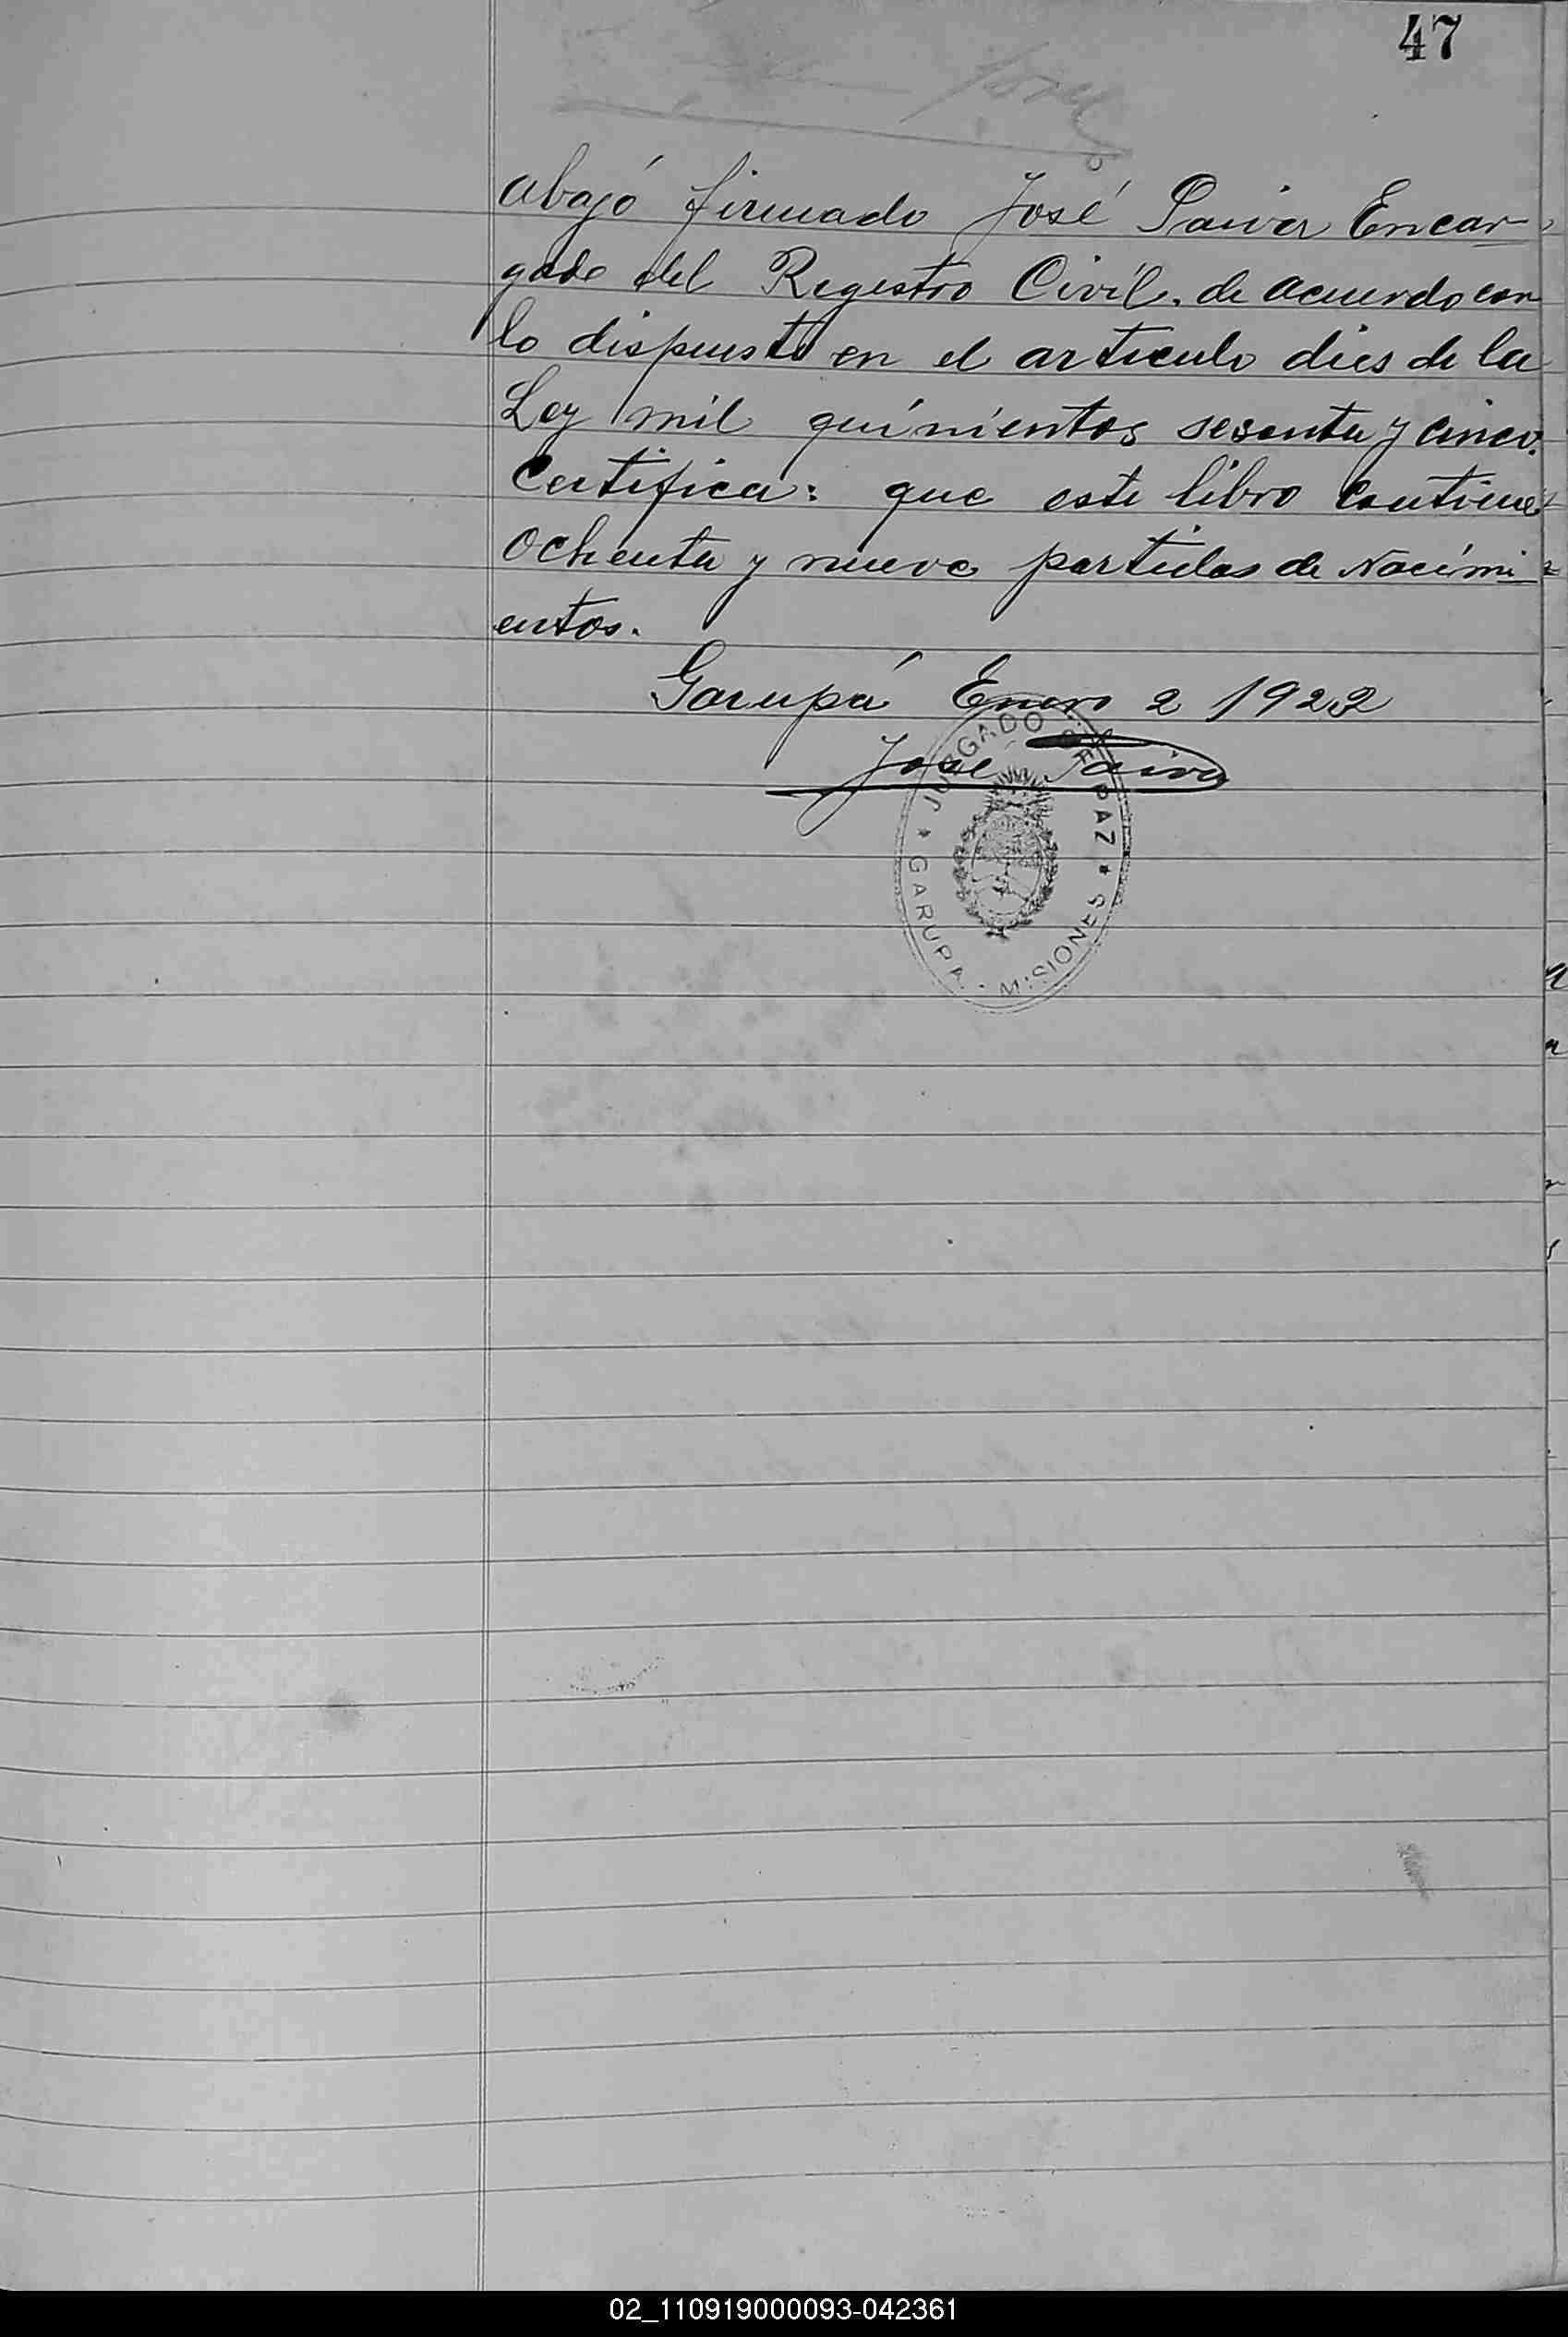 47
abajó firmado José Paiva Encar-
gado del Registro Civil, de acuerdo con
lo dispuesto en el articulo dies de la
Ley mil quinientos sesenta y cinco.
Certifica: que este libro contiene
Ochenta y nueve partidas de Nacimi-
entos.
Garupá Enero 2 1922
José Paiva
JUZGADO DE PAZ * GARUPA - MISIONES *
02_110919000093-042361